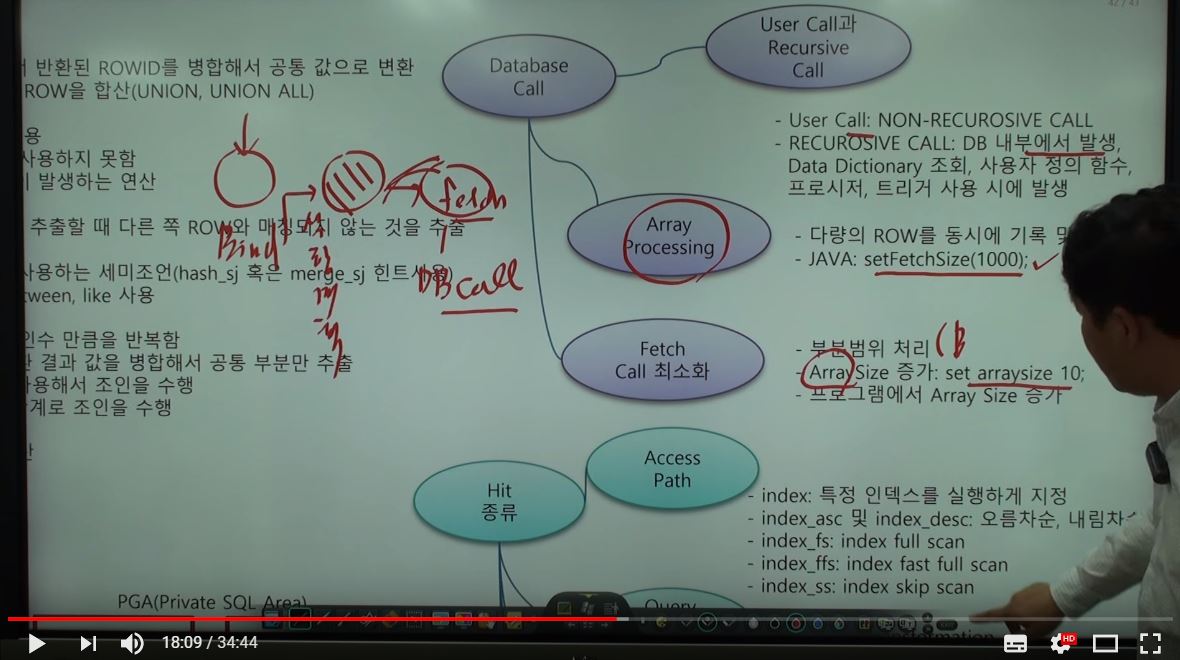 42 / 43
반환된 ROWID를 병합해서 공통 값으로 변환
ROW을 합산(UNION, UNION ALL)
용
사용하지 못함
발생하는 연산
추출할 때 다른 쪽 ROW와 매칭되지 않는 것을 추출
사용하는 세미조언(hash_sj 혹은 merge_sj 힌트사용)
tween, like 사용
인수 만큼을 반복함
결과 값을 병합해서 공통 부분만 추출
사용해서 조인을 수행
계로 조인을 수행
PGA(Private SQL Area)
Bind
실행계획
fetch
DB call
Database
Call
User Call과
Recursive
Call
- User Call: NON-RECUROSIVE CALL
- RECUROSIVE CALL: DB 내부에서 발생,
Data Dictionary 조회, 사용자 정의 함수,
프로시저, 트리거 사용 시에 발생
Array
Processing
- 다량의 ROW를 동시에 기록 및
- JAVA: setFetchSize(1000);
Fetch
Call 최소화
- 부분범위 처리 (B
- ArraySize 증가: set arraysize 10;
- 프로그램에서 Array Size 증가
Hit
종류
Access
Path
- index: 특정 인덱스를 실행하게 지정
- index_asc 및 index_desc: 오름차순, 내림차순
- index_fs: index full scan
- index_ffs: index fast full scan
- index_ss: index skip scan
Query
18:09 / 34:44
HD